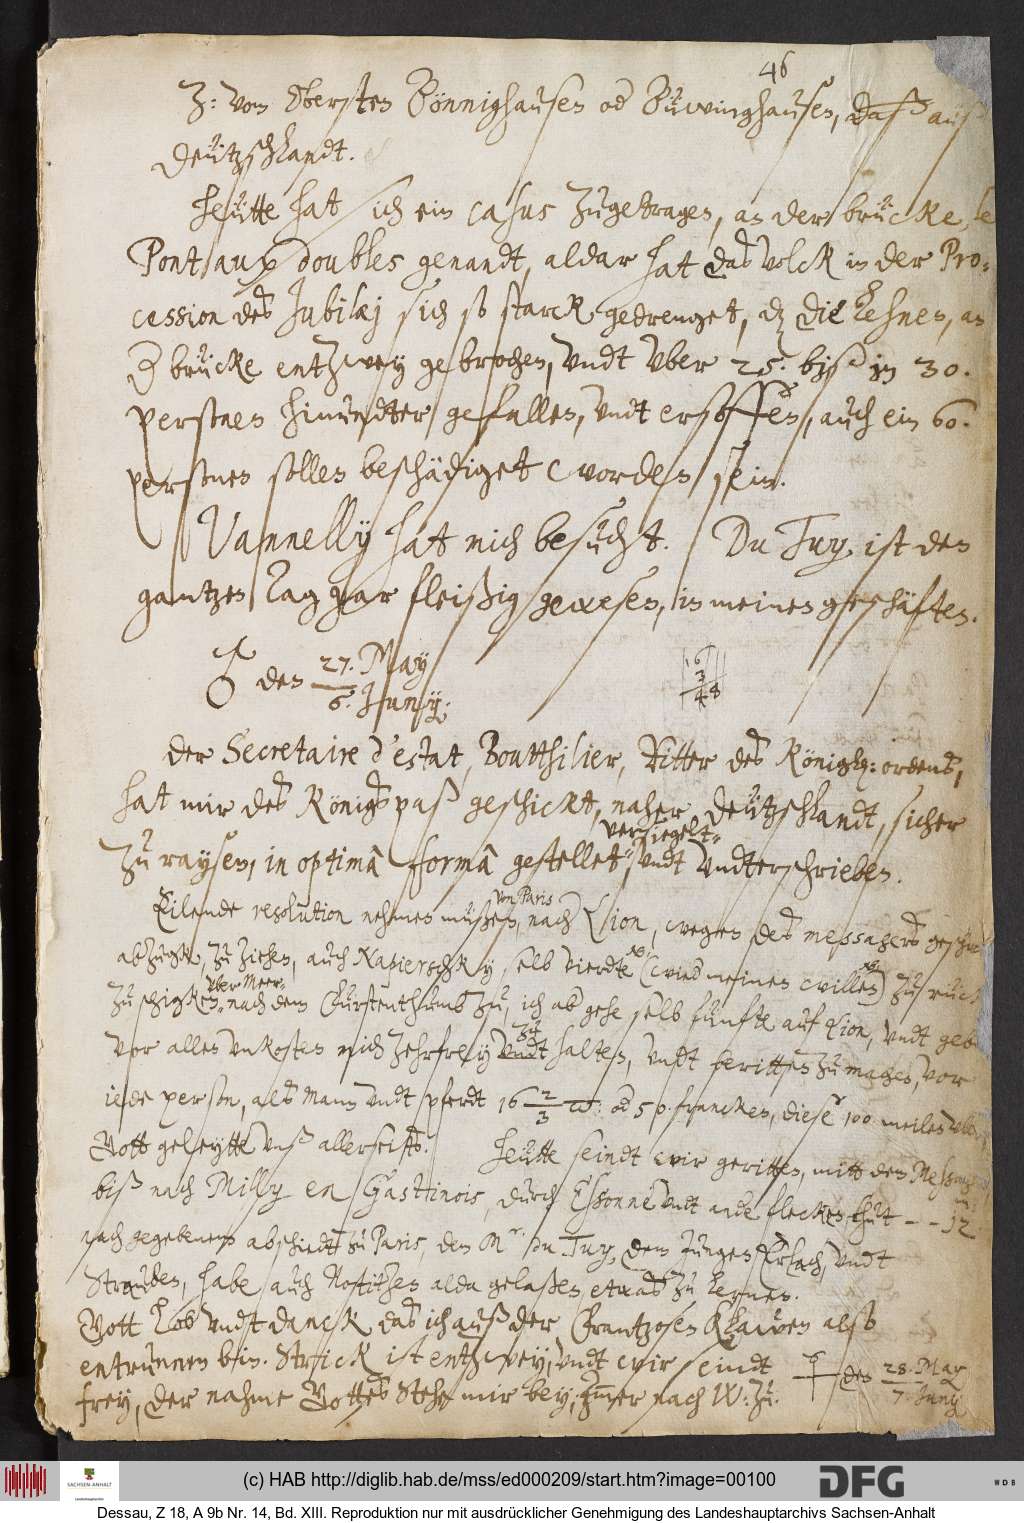 46
Z: vom Obersten Bönnighausen od Buwinghausen, daß auß
Deützschlandt.
Heütte hat sich ein casus zugetragen, an der brücke, le
Pont aux doubles genandt, aldar hat das volck in der Pro-
cession des Jubilæj sich so starck gedrenget, dz die Lehnen, an
d brücke entzwey gebrochen, vndt vber 25. biß in 30.
personen hinundter gefallen, vndt ersoffen, auch ein 60.
personen sollen beschädiget worden sein.
Vannelly hat mich besucht. Du Tuy, ist den
gantzen Tag gar fleißig gewesen, in meinen geschäften.
♂ den 27. May
6. Junij.
der Secretaire d'estat, Boutthilier, Ritter des Königh: ordens,
hat mir des Königs paß geschickt, naher Deützschlandt, sicher
zu raysen, in optimâ formâ gestellet, versiegelt, vndt vndterschrieben.
Eilende resolution nehmen müßen, von Paris nach Lion, wegen des messagers
abzugk, zu ziehen, auch Rapierschky, selb vierdte (wied meinen willen) zu rück
zu schigken, vber Meer, nach dem Fürstenthumb zu, ich ab gehe selb fünfte auf Lion, vndt
vor allen vnkosten mich zehrfrey zu halten, vndt beritten zu machen, vor
iede person, als Mann vndt pferdt 16 2/3 od 50. francken, diese 100 meilen
Gott geleytte vnß allerseits. Heütte seindt wir geritten, mitt dem
biß nach Milly en Gastinois, durch Essonne vndt ande flecken thut - - 12
nach gegebenem abschiedt zu Paris, dem Mr. du Tuy, dem iungen Erlach, vndt
Strauben, habe auch Nostitzen alda gelaßen etwas zu lernen.
Gott Lob vndt danck das ich auß der Frantzosen Klawen also
entrunnen bin. Strick ist entzwey, vndt wir seindt
♃ den 28. May
7. Juny
frey, der nahme Gottes stehe mir bey, immer nach W: zu.
(c) HAB http://diglib.hab.de/mss/ed000209/start.htm?image=00100
SACHSEN-ANHALT
Landeshauptarchiv
DFG
WDB
Dessau, Z 18, A 9b Nr. 14, Bd. XIII. Reproduktion nur mit ausdrücklicher Genehmigung des Landeshauptarchivs Sachsen-Anhalt